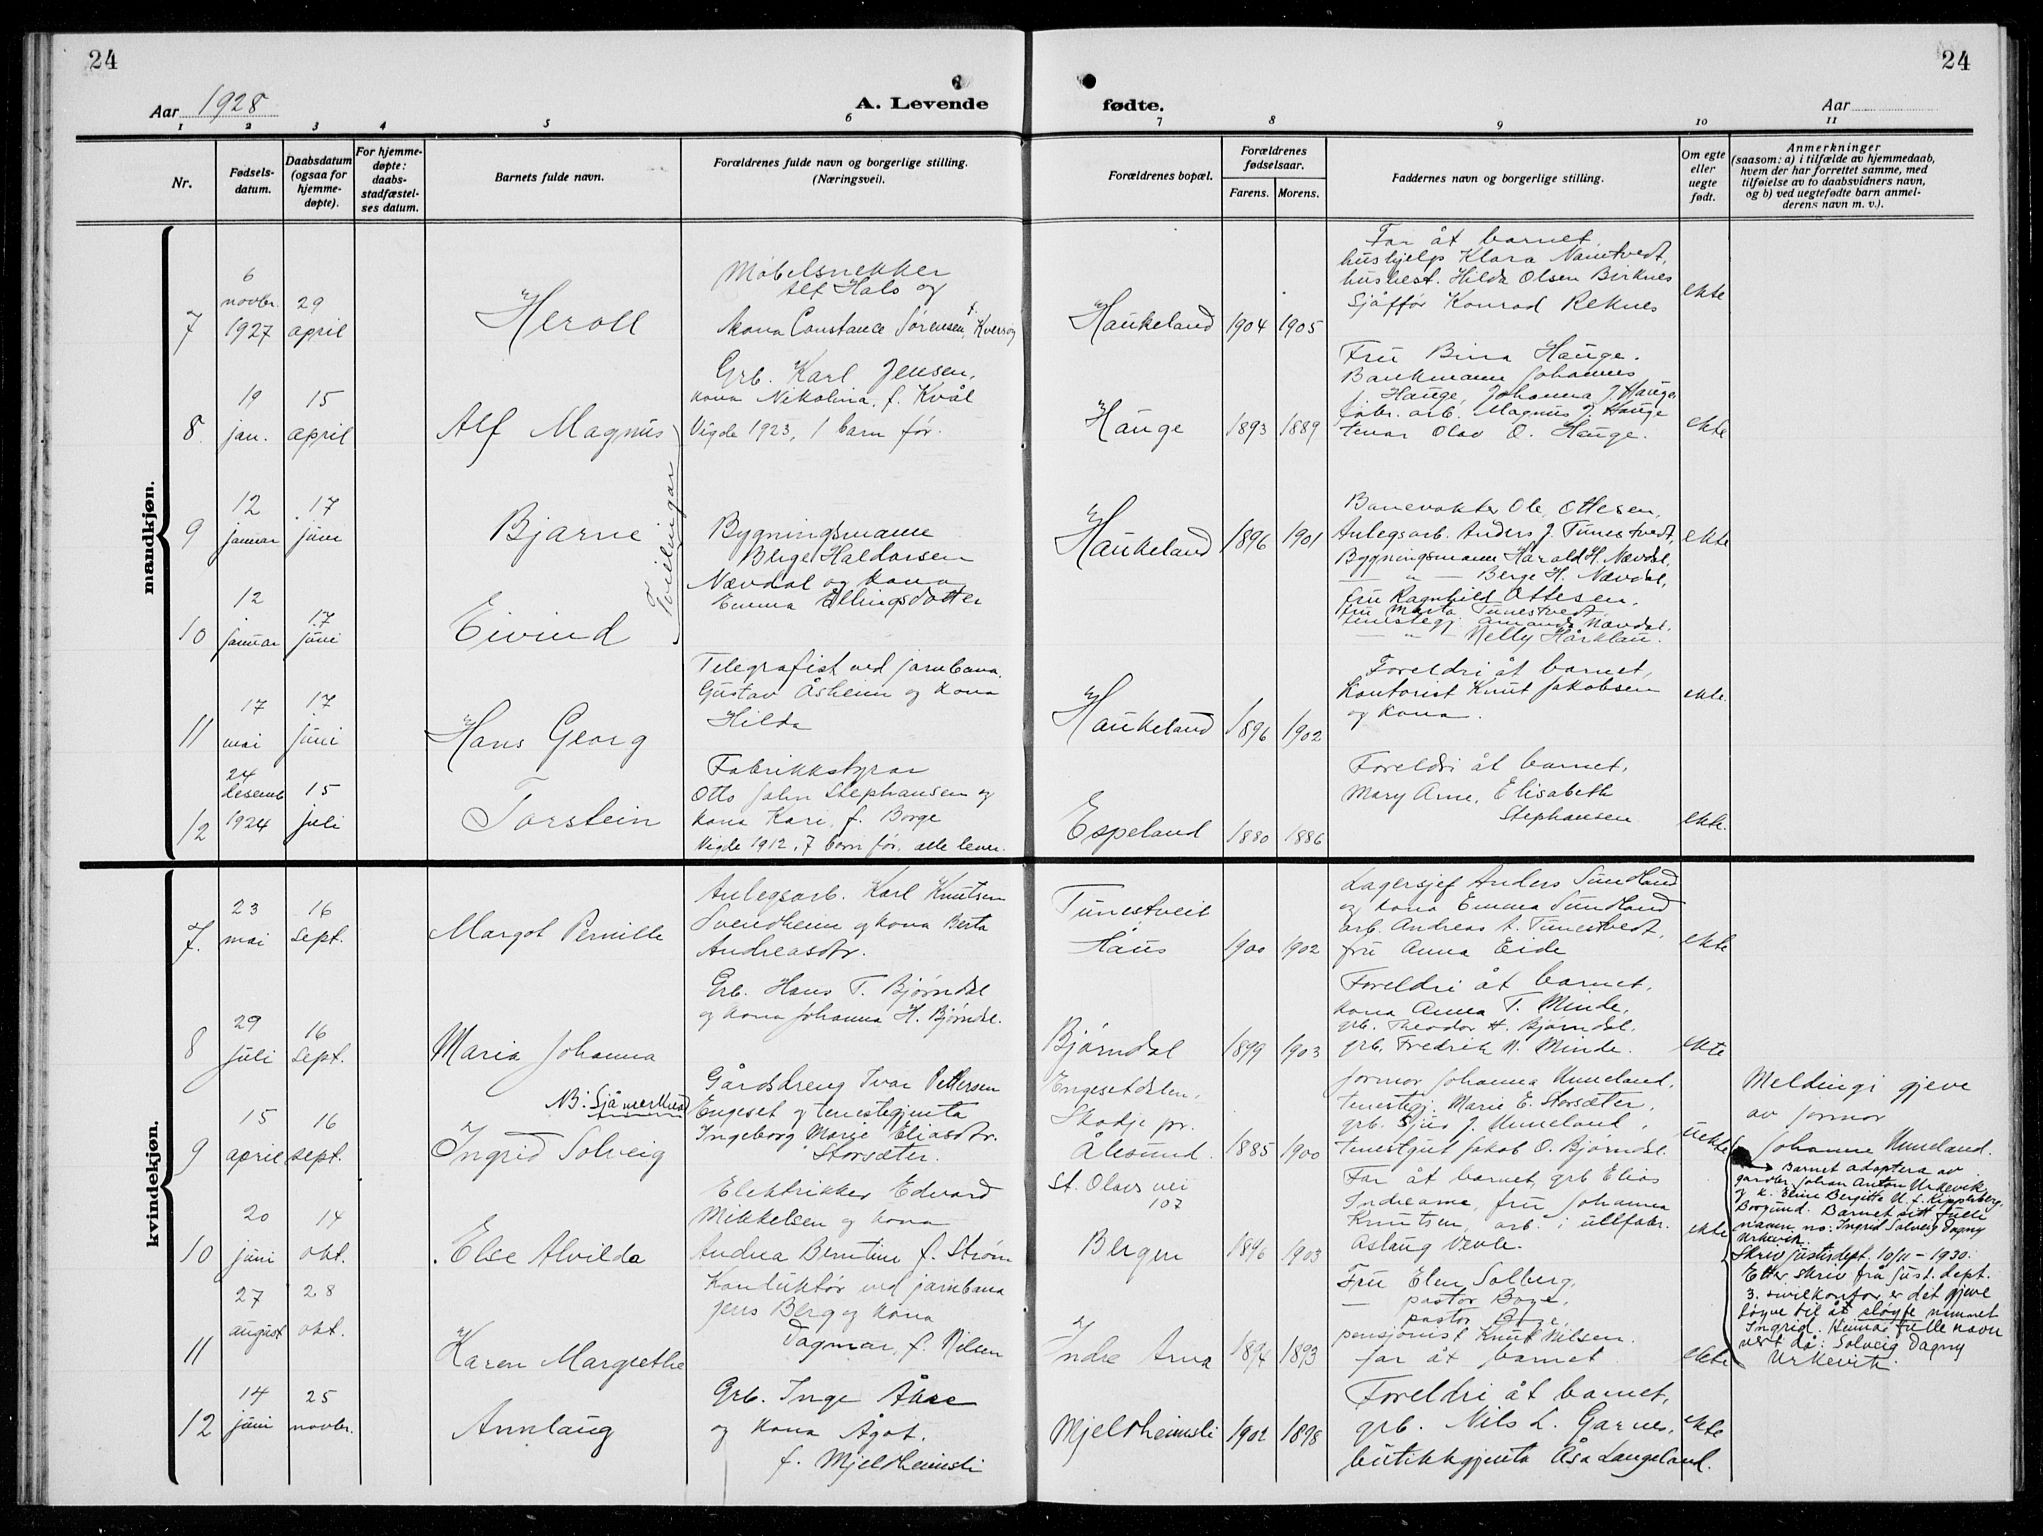 24
24
Aar 1928
A. Levende
fødte.
Aar
1 2 3 4 5 6 7 8 9 10 11
Nr.
Fødsels-
datum.
Daabsdatum
(ogsaa for
hjemme-
døpte).
For hjemme-
døpte:
daabs-
stadfæstel-
ses datum.
Barnets fulde navn.
Forældrenes fulde navn og borgerlige stilling.
(Næringsvei).
Forældrenes bopæl.
Forældrenes
fødselsaar.
Farens. Morens.
Faddernes navn og borgerlige stilling.
Om egte
eller
uegte
født.
Anmerkninger
(saasom: a) i tilfælde av hjemmedaab,
hvem der har forrettet samme, med
tilføielse av to daabsvidners navn,
og b) ved uegtefødte barn anmel-
derens navn m. v.).
mandkjøn.
7
6
novbr.
1927
29
april
Herold
Møbelsnekker
Alf Hals og
kona Constance Sørensen, f. Kversøy
Haukeland
1904
1905
Far åt barnet,
hushjelp Klara Namtvedt,
husbest. Hilda Olsen Birknes
Sjåffør Konrad Reknes
ekte
8.
19
jan.
15
april
Alf Magnus
Grb. Karl Jensen,
kona Nikolina, f. Kvål
Vigde 1923, 1 barn før.
Hauge
1893
1889
Fru Bina Hauge.
Bankmann Johannes
J. Hauge, Johanna J. Hauge,
fabr. arb. Magnus J. Hauge
tenar Olav O. Hauge.
ekte
9
12
januar
17
juni
Bjarne
Tvillingar
Bygningsmann
Berge Haldorsen
Nævdal og kona
Emma Ellingsdotter
Haukeland
1896
1901
Banevakter Ole Ottesen,
Anlegsarb. Anders J. Tunestvedt,
Bygningsmann Harald H. Nævdal,
— " — Berge H. Nævdal,
fru Ragnhild Ottesen,
fru Marta Tunestvedt,
tenestegj. Amanda Nævdal,
— " — Nelly Hårklau.
ekte
10
12
januar
17
juni
Eivind
11
17
mai
17
juni
Hans Georg
Telegrafist ved jarnbana
Gustav Åsheim og kona
Hilda
Haukeland
1896
1902
Foreldri åt barnet,
Kontorist Knut Jakobsen
og kona.
ekte.
12
24
desemb
1924
15
juli
Torstein
Fabrikkstyrar
Otto John Stephansen og
kona Kari, f. Borge
Vigde 1912, 7 born før, alle lever.
Espeland
1880
1886
Foreldri åt barnet,
Mary Arne, Elisabeth
Stephansen
ekte.
kvindekjøn.
7.
23
mai
16
sept.
Margot Pernille
Anlegsarb. Karl Knutsen
Svendheim og kona Berta
Andreasdtr.
Tunestveit
Haus
1900
1902
Lagersjef Anders Sundland
og kona Emma Sundland
arb. Andreas A. Tunestvedt,
fru Anna Eide
ekte
8
29
juli
16
sept.
Maria Johanna
Grb. Hans T. Bjørndal
og kona Johanna H. Bjørndal.
Bjørndal
1899
1903
Foreldri åt barnet,
kona Anna T. Minde,
grb. Theodor H. Bjørndal.
grb. Fredrik N. Minde.
ekte
9
15
april
16
sept.
NB. Sjå merknad
Ingrid Solveig
Gårdsdreng Ivar Pettersen
Engeset og tenestegjenta
Ingeborg Marie Eliasdtr.
Storsæter.
Engesetdalen,
Skodje pr.
Ålesund.
1885
1900
formor Johanna Unneland,
tenestegj. Marie E. Storsæter,
grb. Sjur J. Unneland,
tenestgut Jakob O. Bjørndal.
uekte
Meldingi gjeve
av formor
Johanne Unneland.
→ Barnet adoptera av
gardbr. Johan Anton Urkevik
og k. Eline Bergitte U. f. Kipperberg,
Borgund. Barnet sitt fulle
namn no: Ingrid Solveig Dagny
Urkevik.
Skriv Justisdept. 10/11 - 1930.
Etter skriv frå Just. dept.
3. sivilkontor er det gjeve
løyve til åt sløyfe namnet
Ingrid. Hennar fulle navn
vert då: Solveig Dagny
Urkevik.
10
20
juni
14
okt.
Else Alvilda
Elektrikker Edvard
Mikkelsen og kona
Andrea Berntine f. Strøm
St. Olavs vei
107
Bergen
1896
1903
Far åt barnet, grb Elias
Indrearne, fru Johanna
Knutsen, arb. i ullfabr.
Aslaug Vevle.
ekte
11
27
august
28
okt.
Karen Margrethe
Konduktør ved jarnbana
Jens Berg og kona
Dagmar, f. Nilsen
Indre Arna
1894
1893
Fru Elen Solberg,
— pastor Boge,
pastor Boge,
pensjonist Knut Nilsen.
far åt barnet
ekte
12
14
juni
25
novbr.
Annlaug
Grb. Inge Åkre
og kona Ågot,
f. Mjeldheimsli
Mjeldheimsli
1902
1898
Foreldri åt barnet,
grb. Nils L. Garnes,
butikkgjenta Åsa Langeland.
ekte